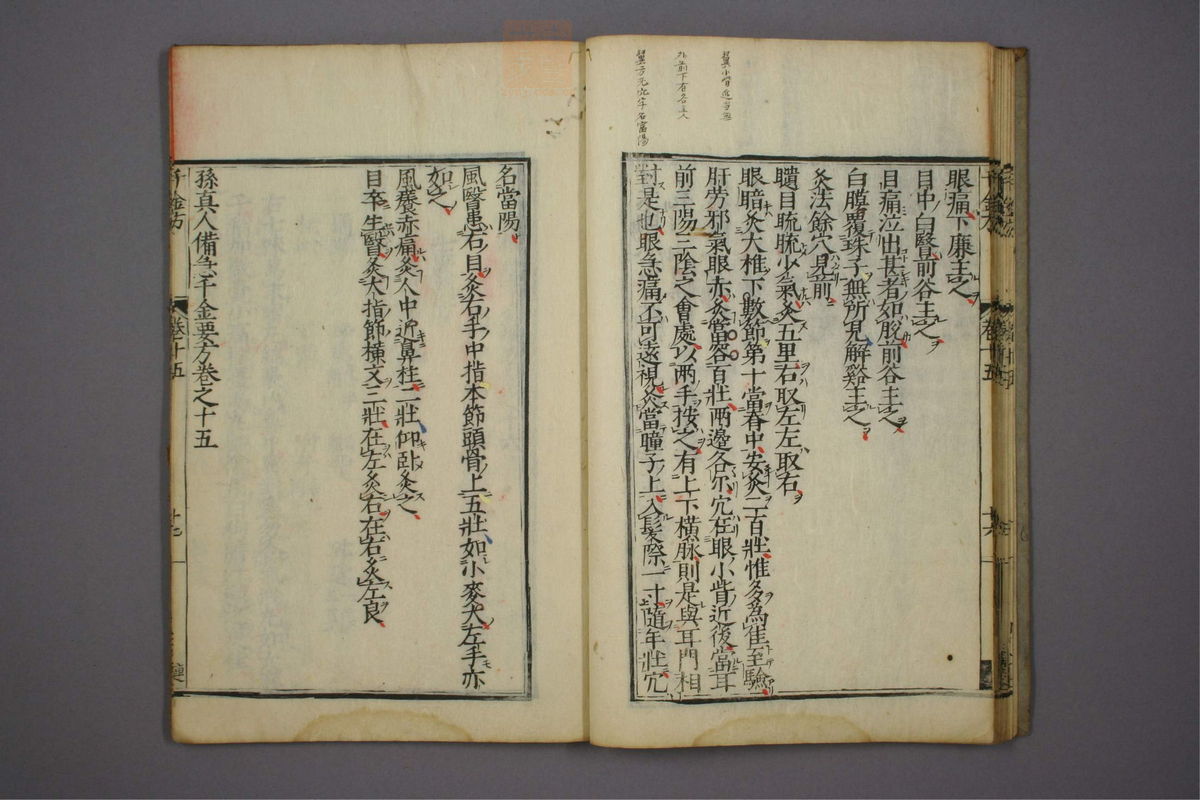 眼痛下廉主之
目中白瞖前谷主之
目痛泣出甚者如脫前谷主之
白膜覆珠子無所見解谿主之
灸法餘穴見前
瞶目䀮䀮少氣灸五里右取左左取右
眼暗灸大椎下數節第十當脊中安灸二百壯惟多為佳至驗
肝勞邪氣眼赤灸當容百壯兩邊各尒穴在眼小眥近後當耳
前三陽三陰之會處以兩手按之有上下橫脉則是與耳門相
對是也眼急痛不可遠視灸當瞳子上入髮際一寸隨年壯穴
名當陽
風瞖患右目灸右手中指本節頭骨上五壯如小麥大左手亦
如之
風癢赤痛灸人中近鼻柱二壯仰卧灸之
目卒生瞖灸大指節橫文三壯在左灸右在右灸左良
孫真人備急千金要方卷之十五
千金方 卷十五